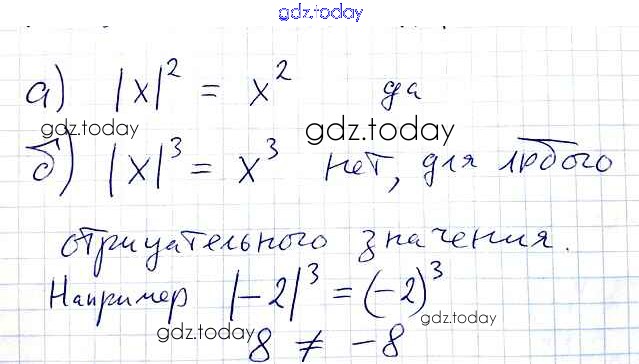 gdz.today
а) |x|² = x² да
gdz.today gdz.today
б) |x|³ = x³ нет, для любого
отрицательного значения.
Например |-2|³ = (-2)³
gdz.today gdz.today
8 ≠ -8